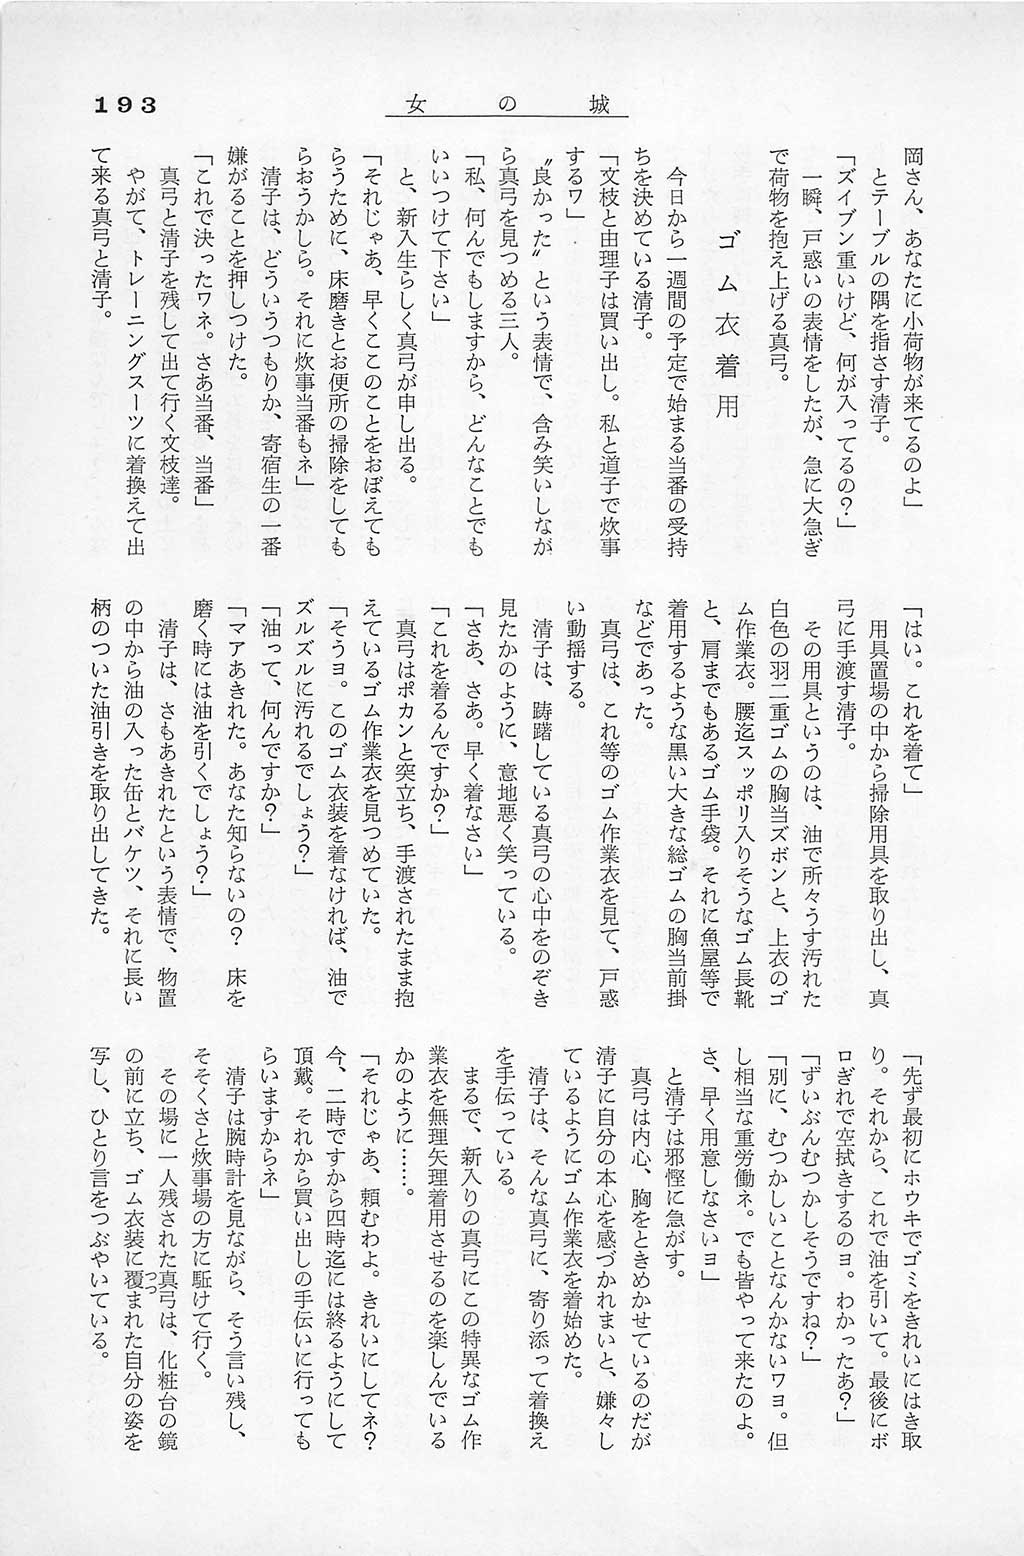 193
女の城
岡さん、あなたに小荷物が来てるのよ」
とテーブルの隅を指さす清子。
「ズイブン重いけど、何が入ってるの？」
一瞬、戸惑いの表情をしたが、急に大急ぎ
で荷物を抱え上げる真弓。
ゴム衣着用
今日から一週間の予定で始まる当番の受持
ちを決めている清子。
「文枝と由理子は買い出し。私と道子で炊事
するワ」
〝良かった〟という表情で、含み笑いしなが
ら真弓を見つめる三人。
「私、何んでもしますから、どんなことでも
いいつけて下さい」
と、新入生らしく真弓が申し出る。
「それじゃあ、早くここのことをおぼえても
らうために、床磨きとお便所の掃除をしても
らおうかしら。それに炊事当番もネ」
清子は、どういうつもりか、寄宿生の一番
嫌がることを押しつけた。
「これで決ったワネ。さあ当番、当番」
真弓と清子を残して出て行く文枝達。
やがて、トレーニングスーツに着換えて出
て来る真弓と清子。
「はい。これを着て」
用具置場の中から掃除用具を取り出し、真
弓に手渡す清子。
その用具というのは、油で所々うす汚れた
白色の羽二重ゴムの胸当ズボンと、上衣のゴ
ム作業衣。腰迄スッポリ入りそうなゴム長靴
と、肩までもあるゴム手袋。それに魚屋等で
着用するような黒い大きな総ゴムの胸当前掛
などであった。
真弓は、これ等のゴム作業衣を見て、戸惑
い動揺する。
清子は、躊躇している真弓の心中をのぞき
見たかのように、意地悪く笑っている。
「さあ、さあ。早く着なさい」
「これを着るんですか？」
真弓はポカンと突立ち、手渡されたまま抱
えているゴム作業衣を見つめていた。
「そうヨ。このゴム衣装を着なければ、油で
ズルズルに汚れるでしょう？」
「油って、何んですか？」
「マアあきれた。あなた知らないの？　床を
磨く時には油を引くでしょう？」
清子は、さもあきれたという表情で、物置
の中から油の入った缶とバケツ、それに長い
柄のついた油引きを取り出してきた。
「先ず最初にホウキでゴミをきれいにはき取
り。それから、これで油を引いて。最後にボ
ロぎれで空拭きするのヨ。わかったあ？」
「ずいぶんむつかしそうですね？」
「別に、むつかしいことなんかないワョ。但
し相当な重労働ネ。でも皆やって来たのよ。
さ、早く用意しなさいヨ」
と清子は邪慳に急がす。
真弓は内心、胸をときめかせているのだが
清子に自分の本心を感づかれまいと、嫌々し
ているようにゴム作業衣を着始めた。
清子は、そんな真弓に、寄り添って着換え
を手伝っている。
まるで、新入りの真弓にこの特異なゴム作
業衣を無理矢理着用させるのを楽しんでいる
かのように……。
「それじゃあ、頼むわよ。きれいにしてネ？
今、二時ですから四時迄には終るようにして
頂戴。それから買い出しの手伝いに行っても
らいますからネ」
清子は腕時計を見ながら、そう言い残し、
そそくさと炊事場の方に駈けて行く。
その場に一人残された真弓は、化粧台の鏡
の前に立ち、ゴム衣装に覆まれた自分の姿を
つつ
写し、ひとり言をつぶやいている。